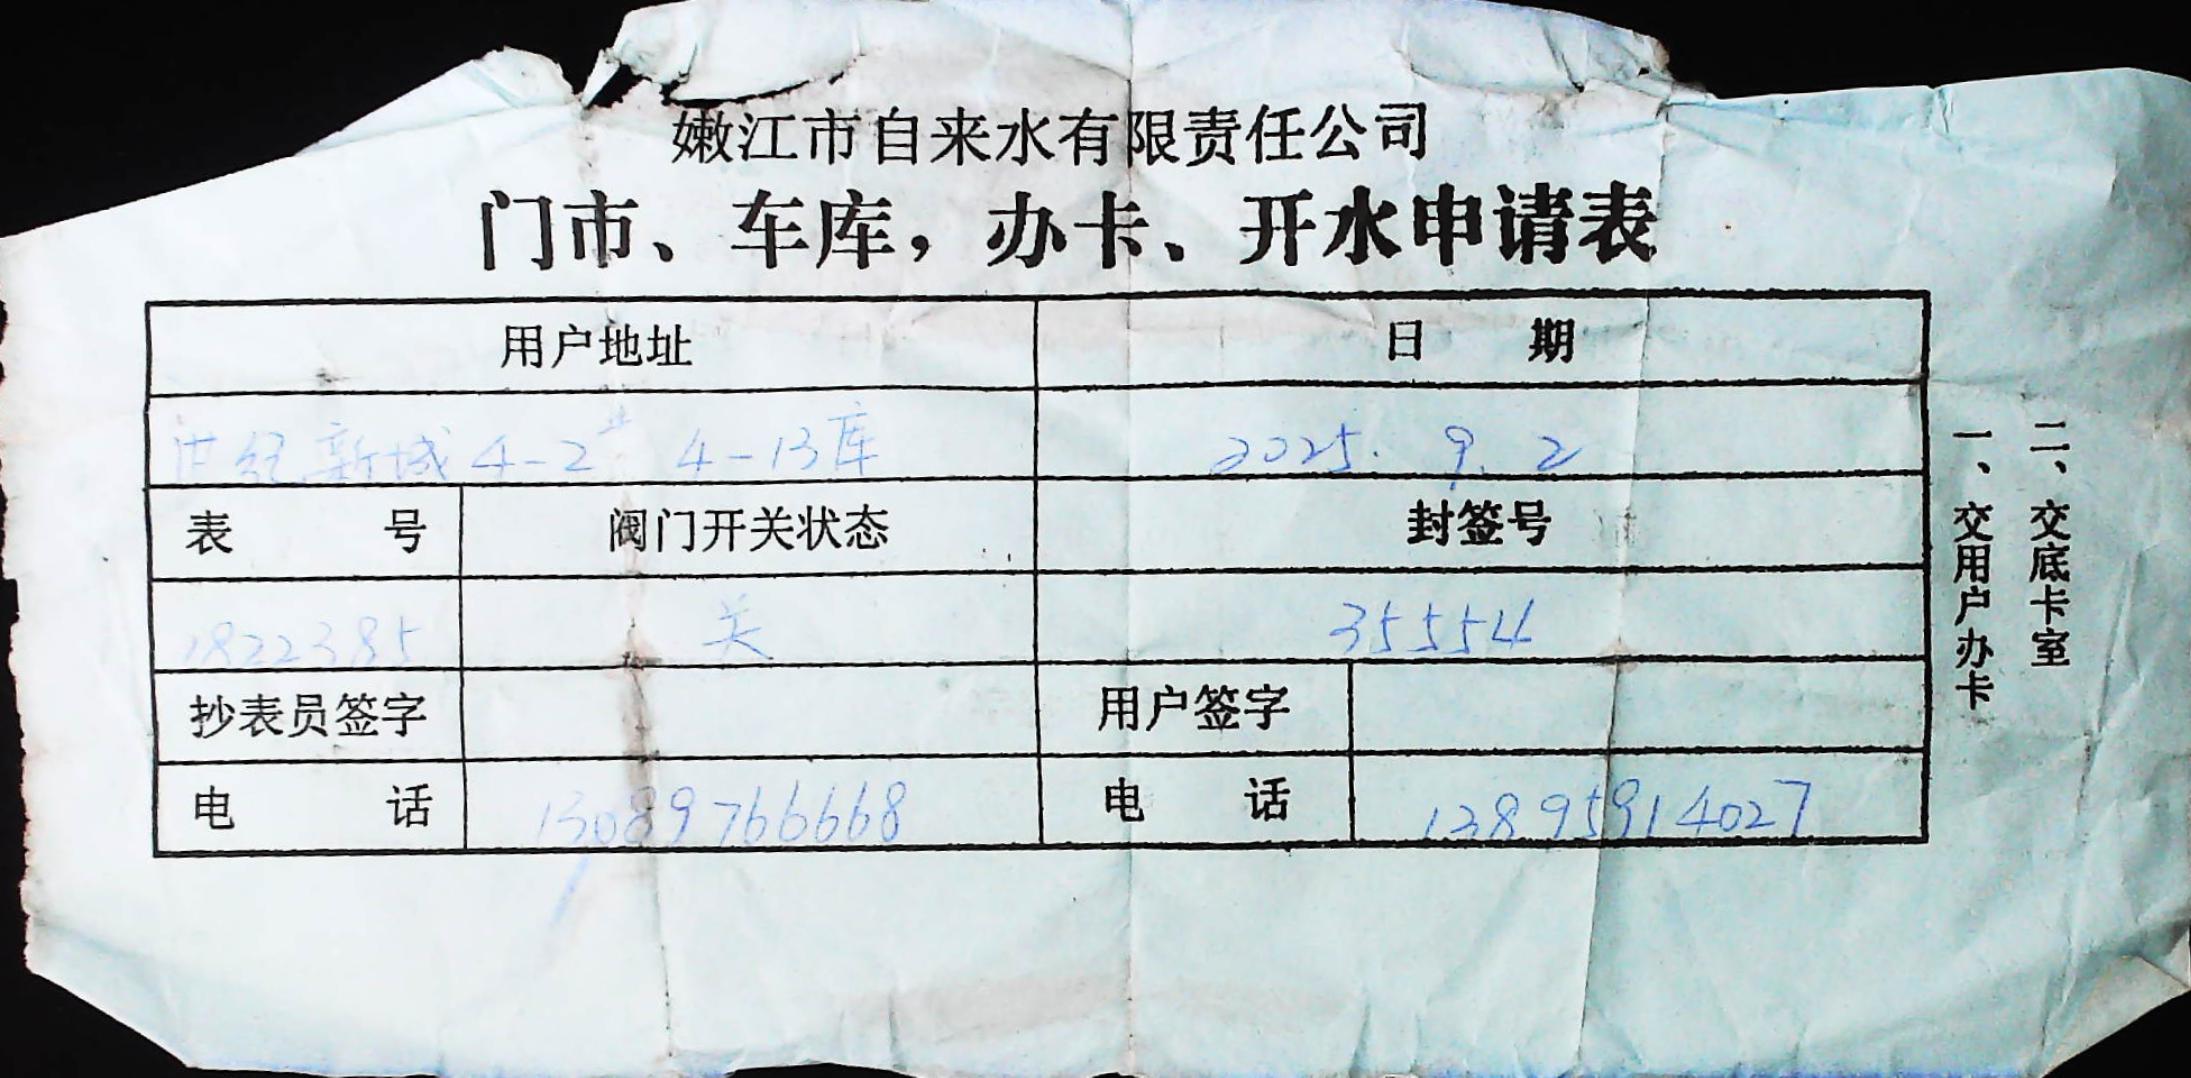 嫩江市自来水有限责任公司
门市、车库，办卡、开水申请表
用户地址 日 期
世纪新城 4-2# 4-13库 2025. 9. 2
表 号 阀门开关状态 封签号
1822385 关 35554
抄表员签字 用户签字
电 话 13089766668 电 话 13895914027
一、交用户办卡
二、交底卡室